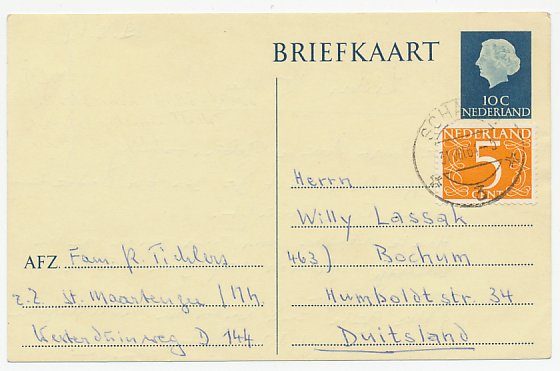 BRIEFKAART
10 C
NEDERLAND
NEDERLAND
5
CENT
Herrn
Willy Lassak
463) Bochum
Humboldtstr 34
Duitsland
AFZ. Fam. R. Tichlers
z.Z. St. Maartenzee / Nh.
Westerduinweg D 144